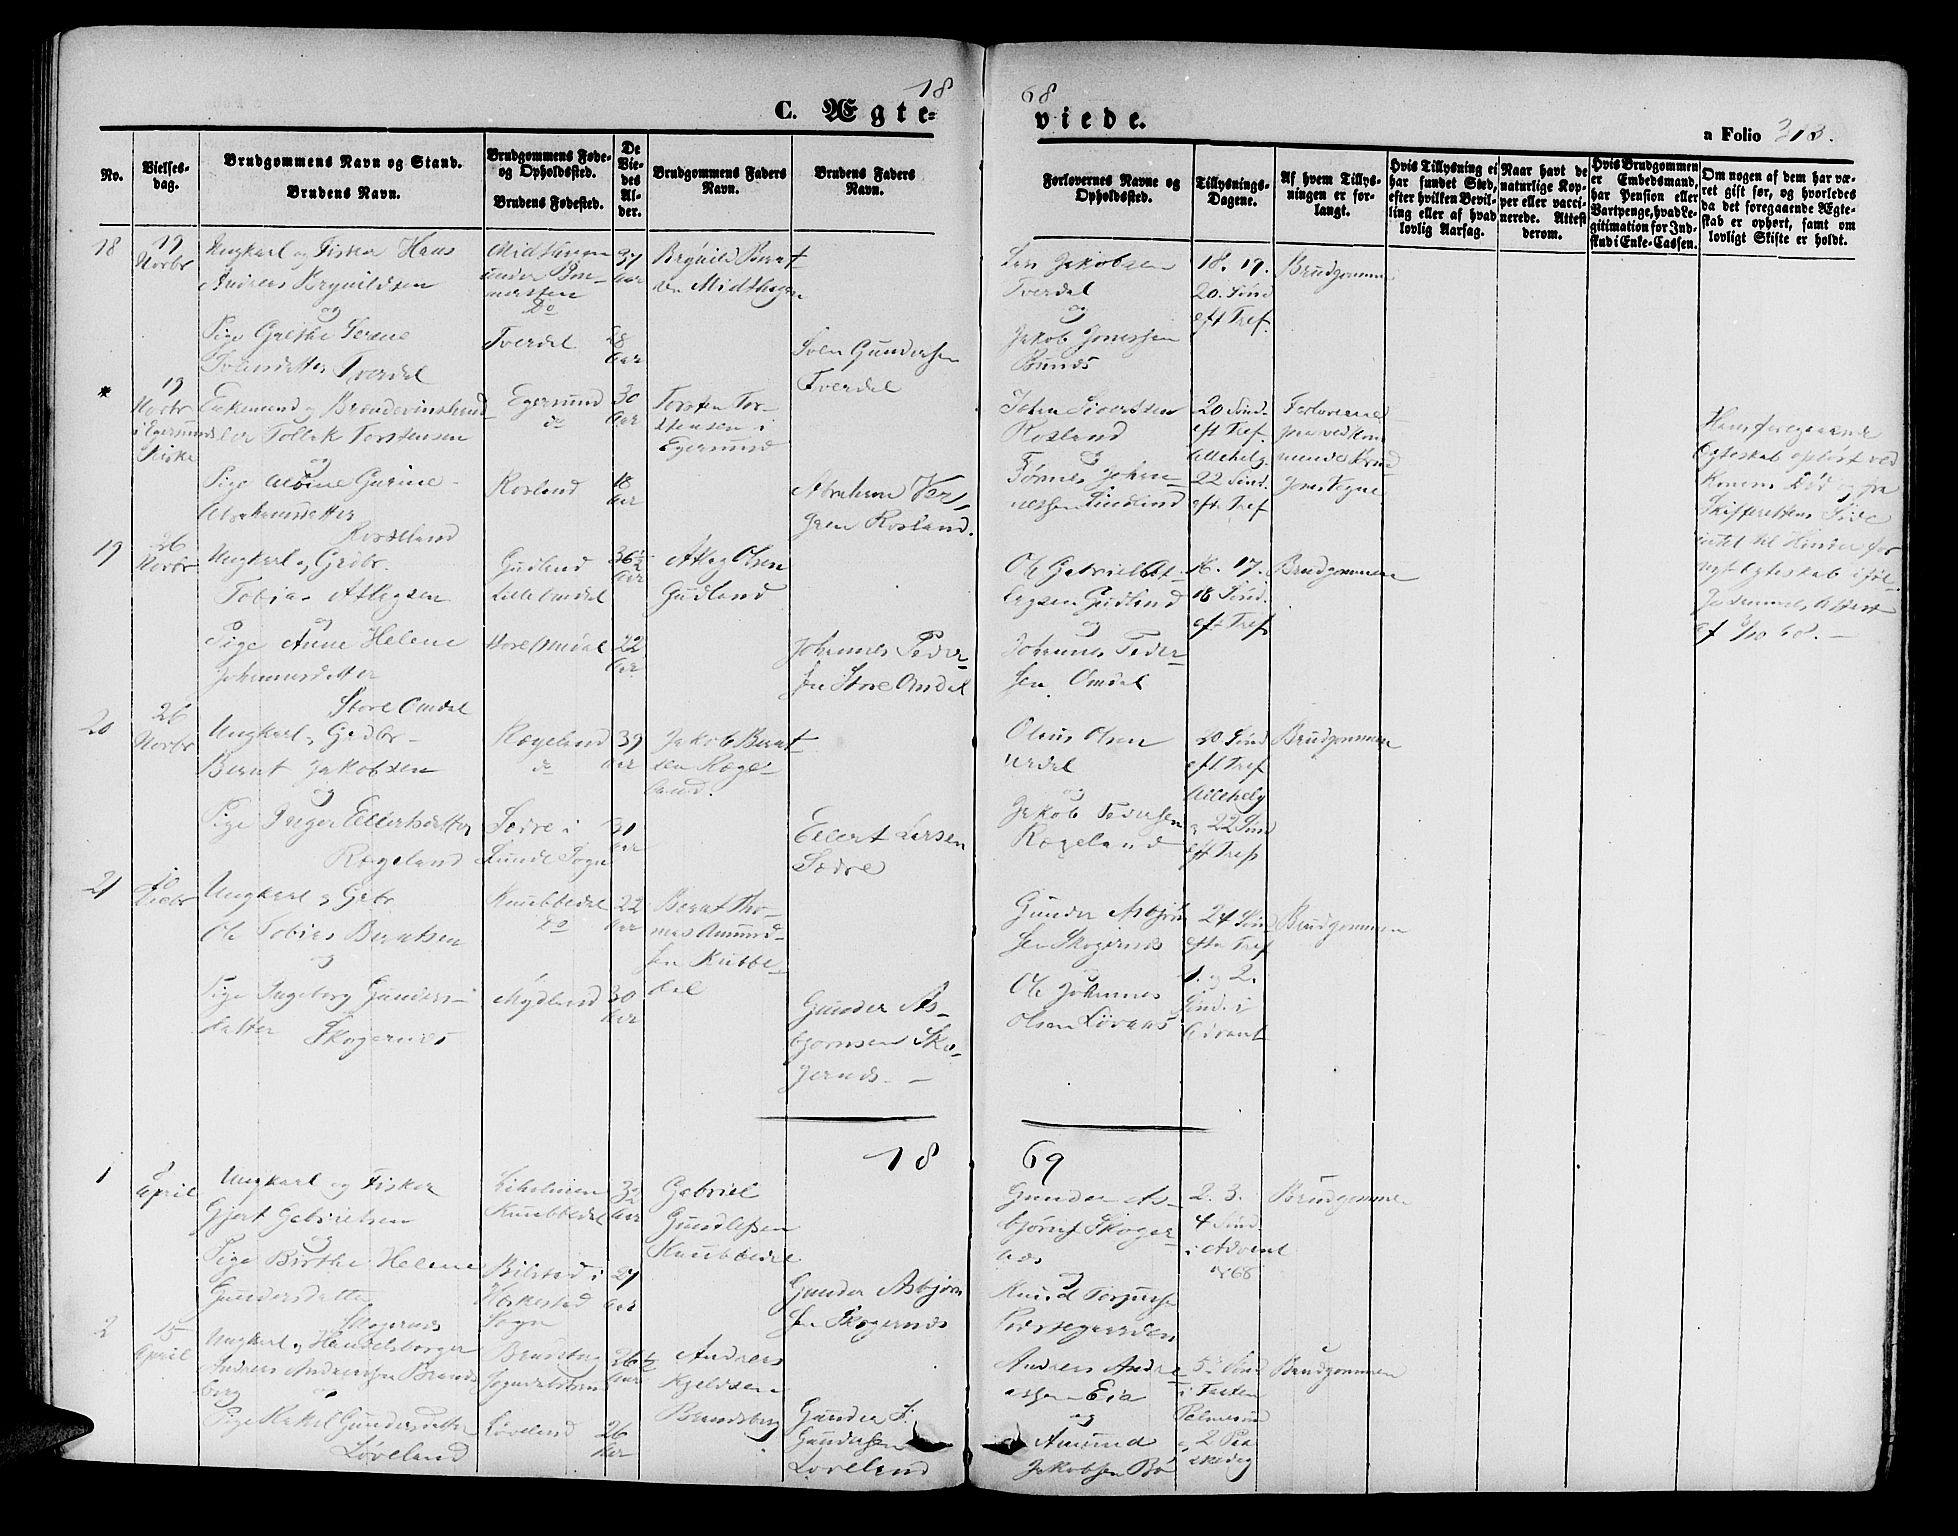 18
68
C. Ægte-
viede.
a Folio 313.
No.
Vielses-
dag.
Brudgommens Navn og Stand.
Brudens Navn.
Brudgommens Føde-
og Opholdsted.
Brudens Fødested.
De
Vie-
des
Al-
der.
Brudgommens Faders
Navn.
Brudens Faders
Navn.
Forlovernes Navne og
Opholdsted.
Tillysnings-
Dagene.
Af hvem Tillys-
ningen er for-
langt.
Hvis Tillysning ei
har fundet Sted,
efter hvilken Bevil-
ling eller af hvad
lovlig Aarsag.
Naar havt de
naturlige Kop-
per eller vacci-
nerede. Attest
derom.
Hvis Brudgommen
er Embedsmand,
har Pension eller
Vartpenge, hvad Le-
gitimation for Ind-
skud i Enke-Cassen.
Om nogen af dem har væ-
ret gift før, og hvorledes
da det foregaaende Ægte-
skab er ophørt, samt om
lovligt Skifte er holdt.
18
19
Novbr
Ungkarl og Fisker Hans
Andreas Brynildsen
og
Pige Grethe Serene
Svensdatter Tverdal
Midthaugen
under
Do
Tverdal
37
Aar
28
Aar
Brynild Bernt-
sen Midthaugen
Sven Gundersen
Tverdal
Lars Jakobsen
Tverdal
og
Jakob Jonassen
18. 19.
20. Sønd
eft Tref.
Brudgommen
*
19
Novbr
i Egersunds
Kirke
Enkemand og Brændevinshand-
ler Tollak Torstensen
og
Pige Gurine
Abrahamsdatter
Rosseland
Egersund
do
Rosland
30
Aar
18
Aar
Torsten Tor-
stensen i
Egersund
Abraham
Rosland.
John Sivertsen
Rosland
og
Tønnes Johan-
nessen Lindland
20 Sønd.
eft Tref.
Allehelg.
22 Sønd.
eft Tref
Forloverne
paa vedkom-
mende Brud-
goms Vegne
Hans foregaaende
Egteskab ophørt ved
Konens Død og fra
Skifterettens Side
intet til Hinder for
nyt Egteskab iføl-
ge Attest
af
19
26
Novbr
Ungkarl og Grdbr.
Tobias Atlagsen
og
Pige Anne Helene
Johannesdatter
Store Omdal
Gudland
Lille Omdal
Store Omdal
36½
Aar
22
Aar
Atlag Olsen
Gudland
Johannes Peder-
sen Store Omdal
Ole Gabriel At-
lagsen Gudland
og
Johannes Peder-
sen Omdal
16. 17.
18 Sønd.
eft Tref
Brudgommen
20
26
Novbr
Ungkarl og Grdbr
Bernt Jakobsen
og
Pige Inger Eilertsdatter
Rægeland
Rægeland
do
Sødre i
Lunde Sogn
39
Aar
31
Aar
Jakob Bernt-
sen Ræge-
land.
Eilert Larsen
Sødre
Olaus Olsen
Urdal
og
Jakob Pedersen
Rægeland
20 Sønd
eft Tref
Allehelg
og 22 Sønd
eft Tref
Brudgommen
21
10
Decbr
Ungkarl og Grdbr
Ole Tobias Berntsen
og
Pige Ingeborg Gunders-
datter
Skogernæs
Knubbedal
Do
Mydland
22
Aar
30
Aar
Bernt Tho-
mas Amund-
sen Kubbe-
dal
Gunder As-
bjørnsen Sko-
gernæs. –
Gunder Asbjørn
sen Skogernæs
og
Ole Johannes
Olsen Løvaas
24 Sønd
efter Tref
1. og 2.
Sønd. i
Advent
Brudgommen
18
69
1
April
Ungkarl og Fisker
Gjert Gabrielsen
og
Pige Birthe Helene
Gundersdatter
Skogernæs
Liholmen
Knubbedal
Bilstad i
Heskestad
Sogn
32
Aar
27
Aar
Gabriel
Gundersen
Knubbedal
Gunder Asbjørn
sen Skogernæs
Gunder As-
bjørns. Skoger-
næs
og
Knud Torgersen
Prestegaarden
2. 3.
4 Sønd
i Advent
68
Brudgommen
2
15
April
Ungkarl og Handelsborger
Andreas Andreassen Brands
berg
og
Pige Rakel Gundersdatter
Løveland
Brandsberg
Sogndalstrand
Løveland
26½
Aar
26
Aar
Andreas
Kjeldsen
Brandsberg
Gunder S.
Gundersen
Løveland
Andreas Andre-
assen Eia
og
Amund
Jakobsen Bø
5. Sønd
i Fasten
Palmesønd
og 2 Paa-
skedag
Brudgommen